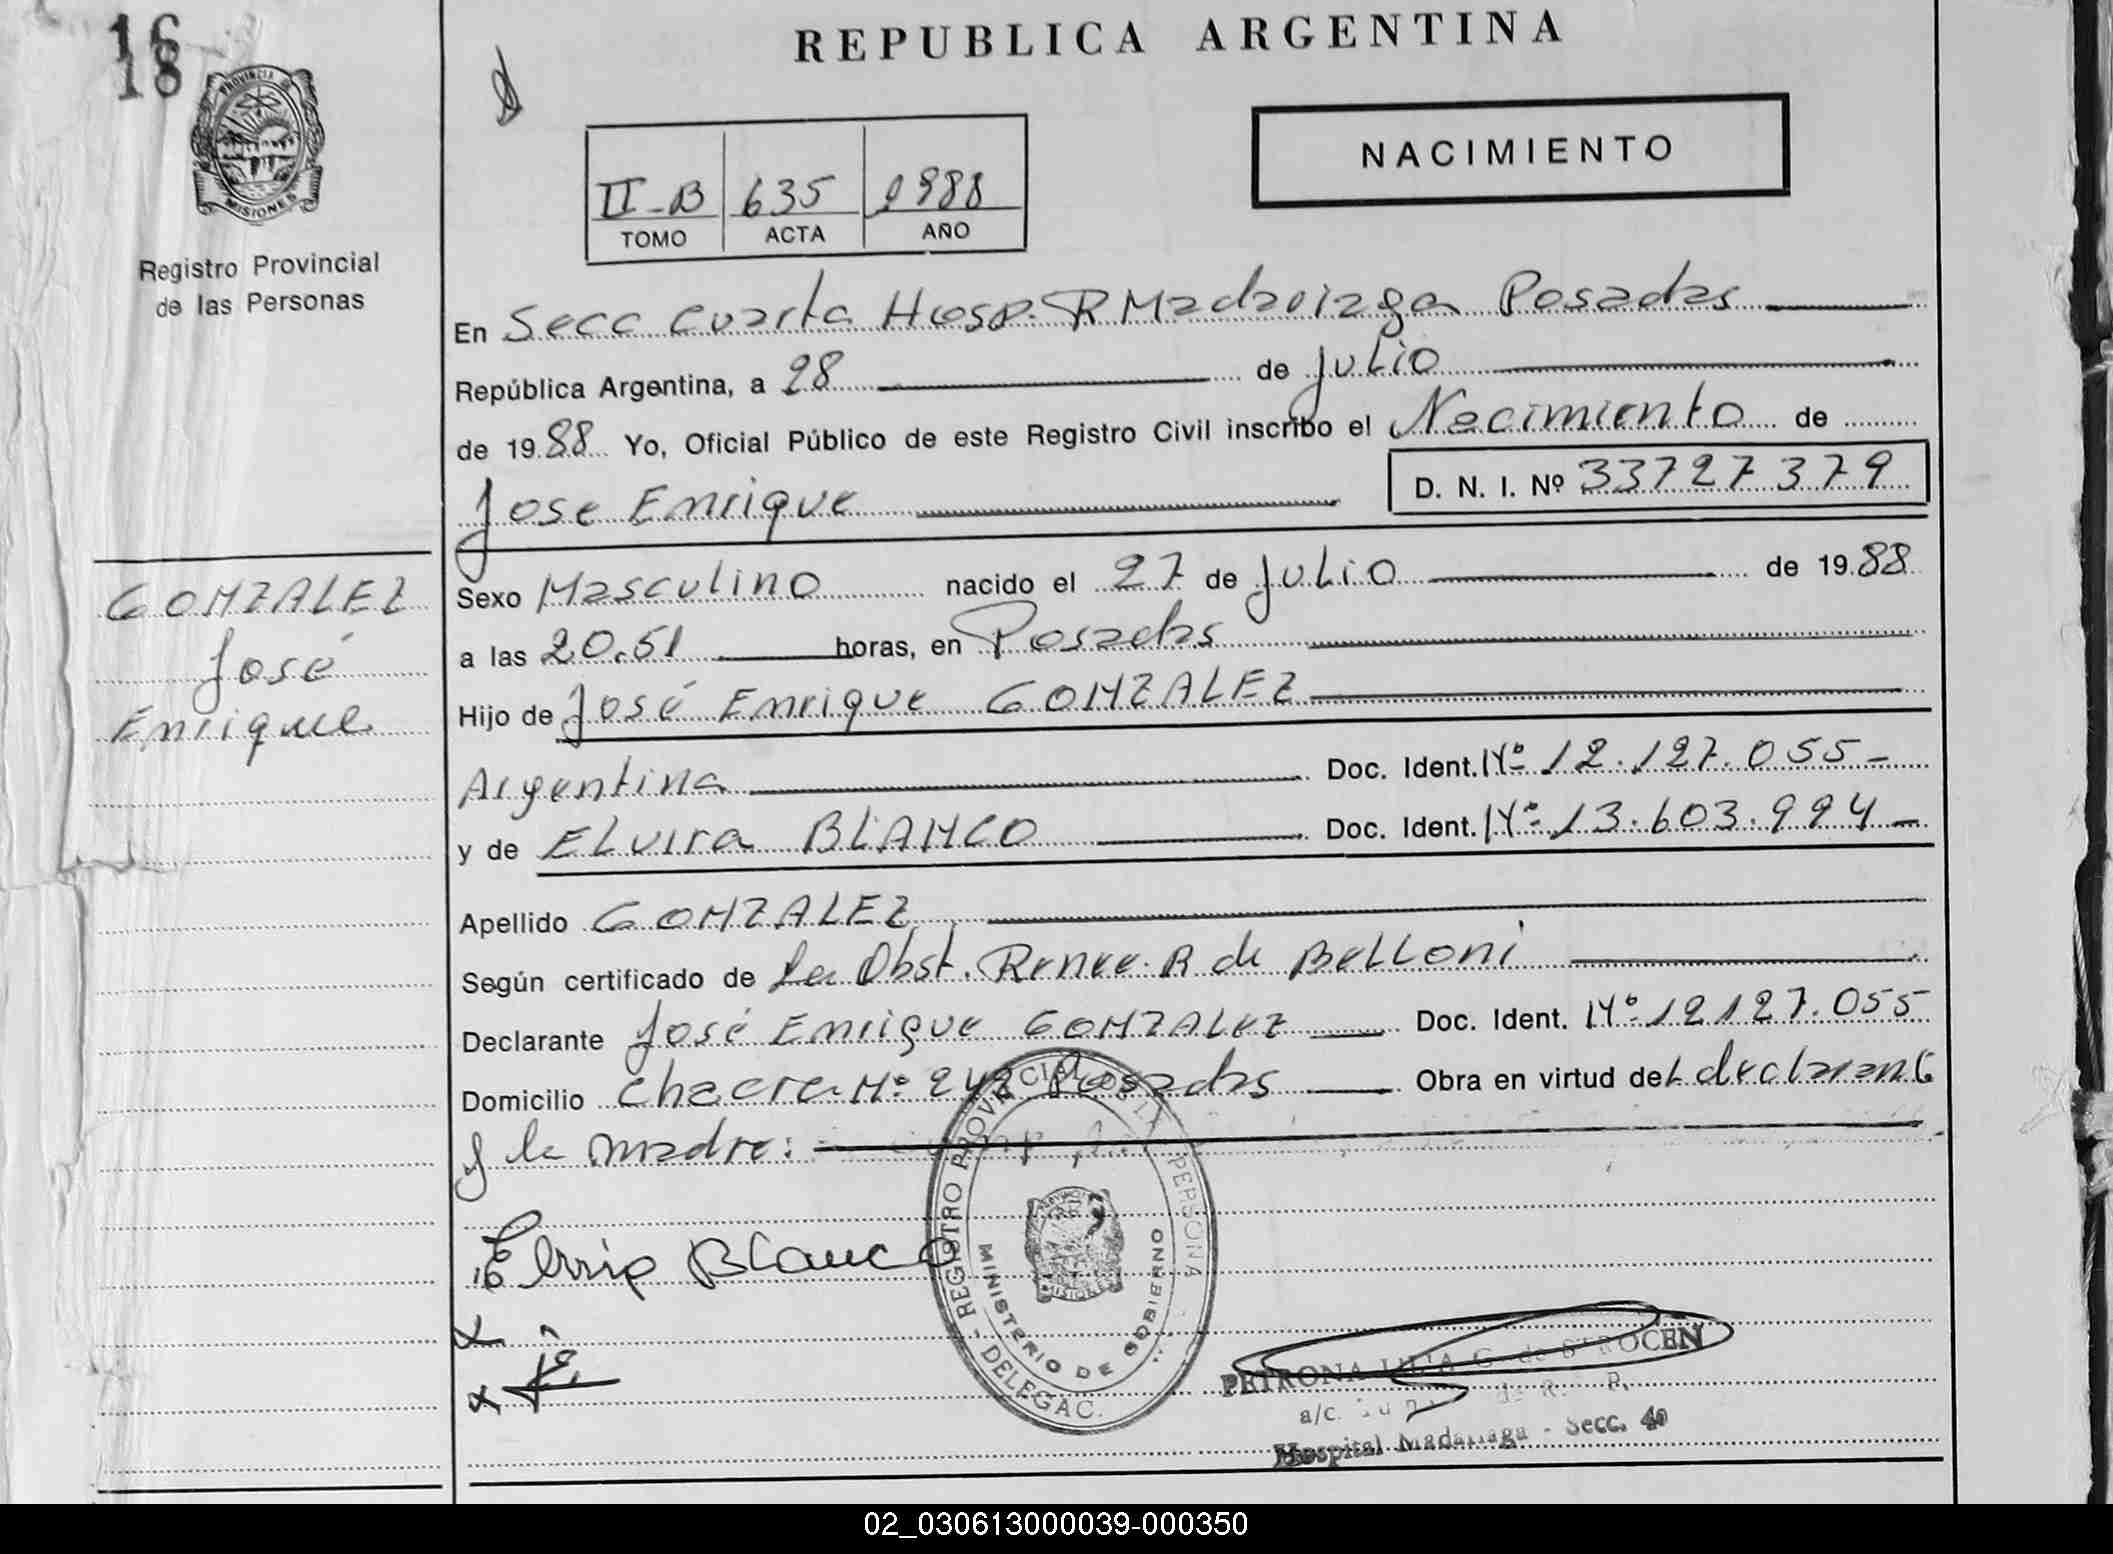 16
18
PROVINCIA DE
MISIONES
Registro Provincial
de las Personas
GONZALEZ
José
Enrique
REPUBLICA ARGENTINA
NACIMIENTO
II-B 635 1988
TOMO ACTA AÑO
En Secc Cuarta Hosp. R Madariaga Posadas
República Argentina, a 28 de Julio
de 1988 Yo, Oficial Público de este Registro Civil inscribo el Nacimiento de
Jose Enrique D. N. I. Nº 33727379
Sexo Masculino nacido el 27 de Julio de 1988
a las 20.51 horas, en Posadas
Hijo de José Enrique GONZALEZ
Argentina Doc. Ident. Nº 12.127.055-
y de Elvira BLANCO Doc. Ident. Nº 13.603.994-
Apellido GONZALEZ
Según certificado de La Obst. Renee R de Belloni
Declarante José Enrique GONZALEZ Doc. Ident. Nº 12127.055
Domicilio Chacra Nº 242 Posadas Obra en virtud del declarante
y la madre:
Elvira Blanco
REGISTRO PROVINCIAL DE LAS PERSONAS - DELEGAC.
MINISTERIO DE GOBIERNO
MISIONES
PETRONA G. de
a/c.
Hospital Madariaga - Secc. 4a
02_030613000039-000350